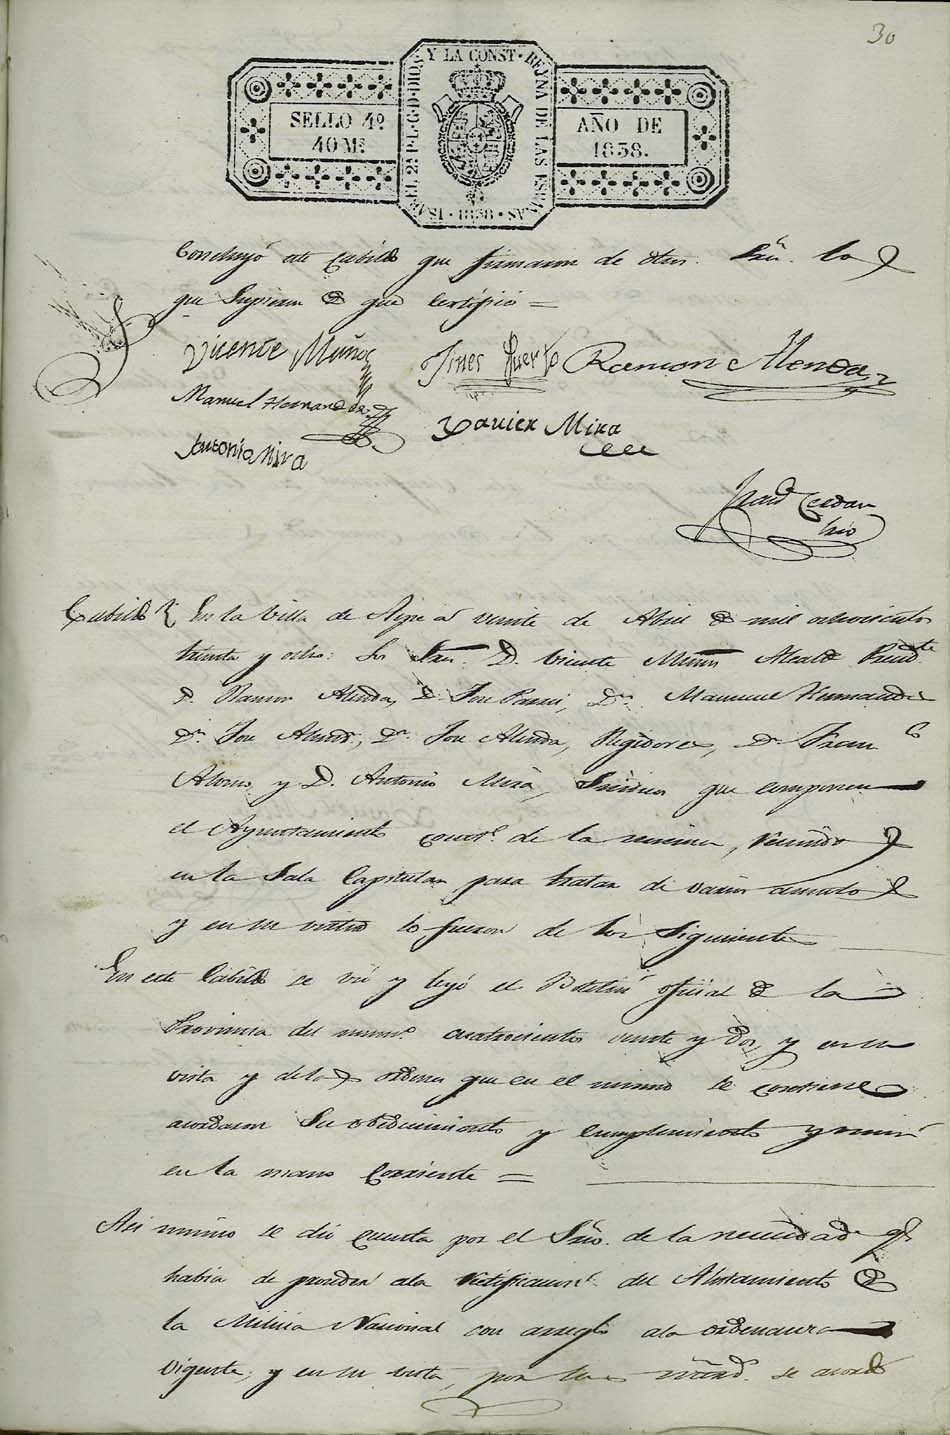 30
ISABEL 2ª P.L.G.D.DIOS Y LA CONST. REYNA DE LAS ESPAÑAS · 1838 ·
SELLO 4º
40 Ms
AÑO DE
1838.
Concluyó este Cabildo que firmaron de dhos. Sres. los
que Supieron de que Certifico =
Vicente Muñoz
Gines Puerto
Ramon Alenda
Manuel Hernandez
Xavier Mira
Antonio Mira
Cabildo En la Villa de Aspe a veinte de Abril de mil ochocientos
treinta y ocho: Los Sres. D. Vicente Muñoz Alcalde Presidte
D. Ramon Alenda, D. Jose D.n Manuel Hernandez
D.n Jose D.n Jose Alenda, Regidores, D.n Franco
Alonso, y D. Antonio Mira, Sindicos que componen
el Ayuntamiento constl. de la misma, reunidos
en la Sala Capitular para tratar de varios asuntos
y en su virtud lo fueron de los Siguientes
En este Cabildo se vió y leyó el Boletin oficial de la
Provincia del numo. cuatrocientos veinte y dos, y en su
vista y de las ordenes que en el mismo se contiene
acordaron Su obedecimiento y cumplimiento y
en la mano Corriente =
Asi mismo se dió cuenta por el Srio. de la necesidad qe
habia de proceder a la rectificacion del Alistamiento de
la Milicia Nacional con arreglo a la ordenanza
Vigente, y en su vista, por se acordó